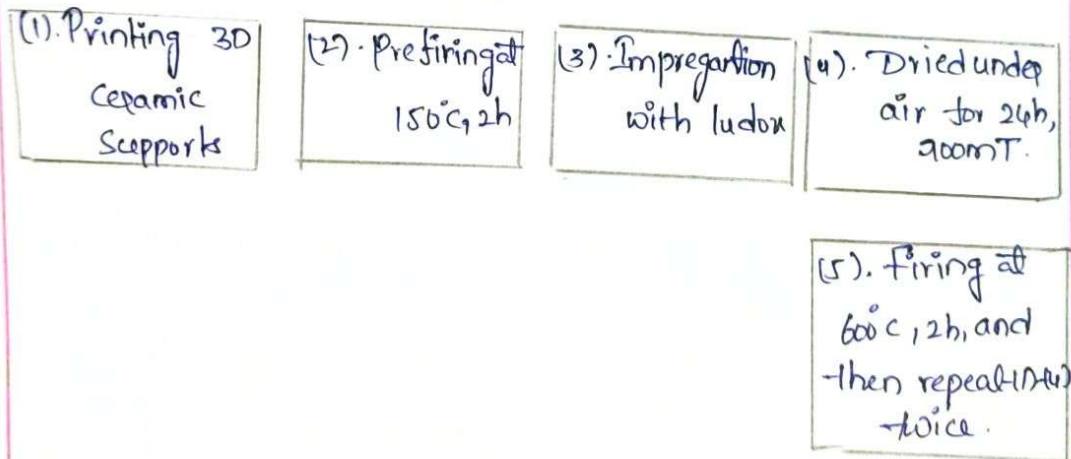 (1). Printing 3D
Ceramic
Supports
(2). Prefiring at
150°C, 2h
(3). Impregartion
with ludox
(4). Dried under
air for 24h,
900mT.
(5). firing at
600°C, 2h, and
then repeat (1)-(4)
twice.